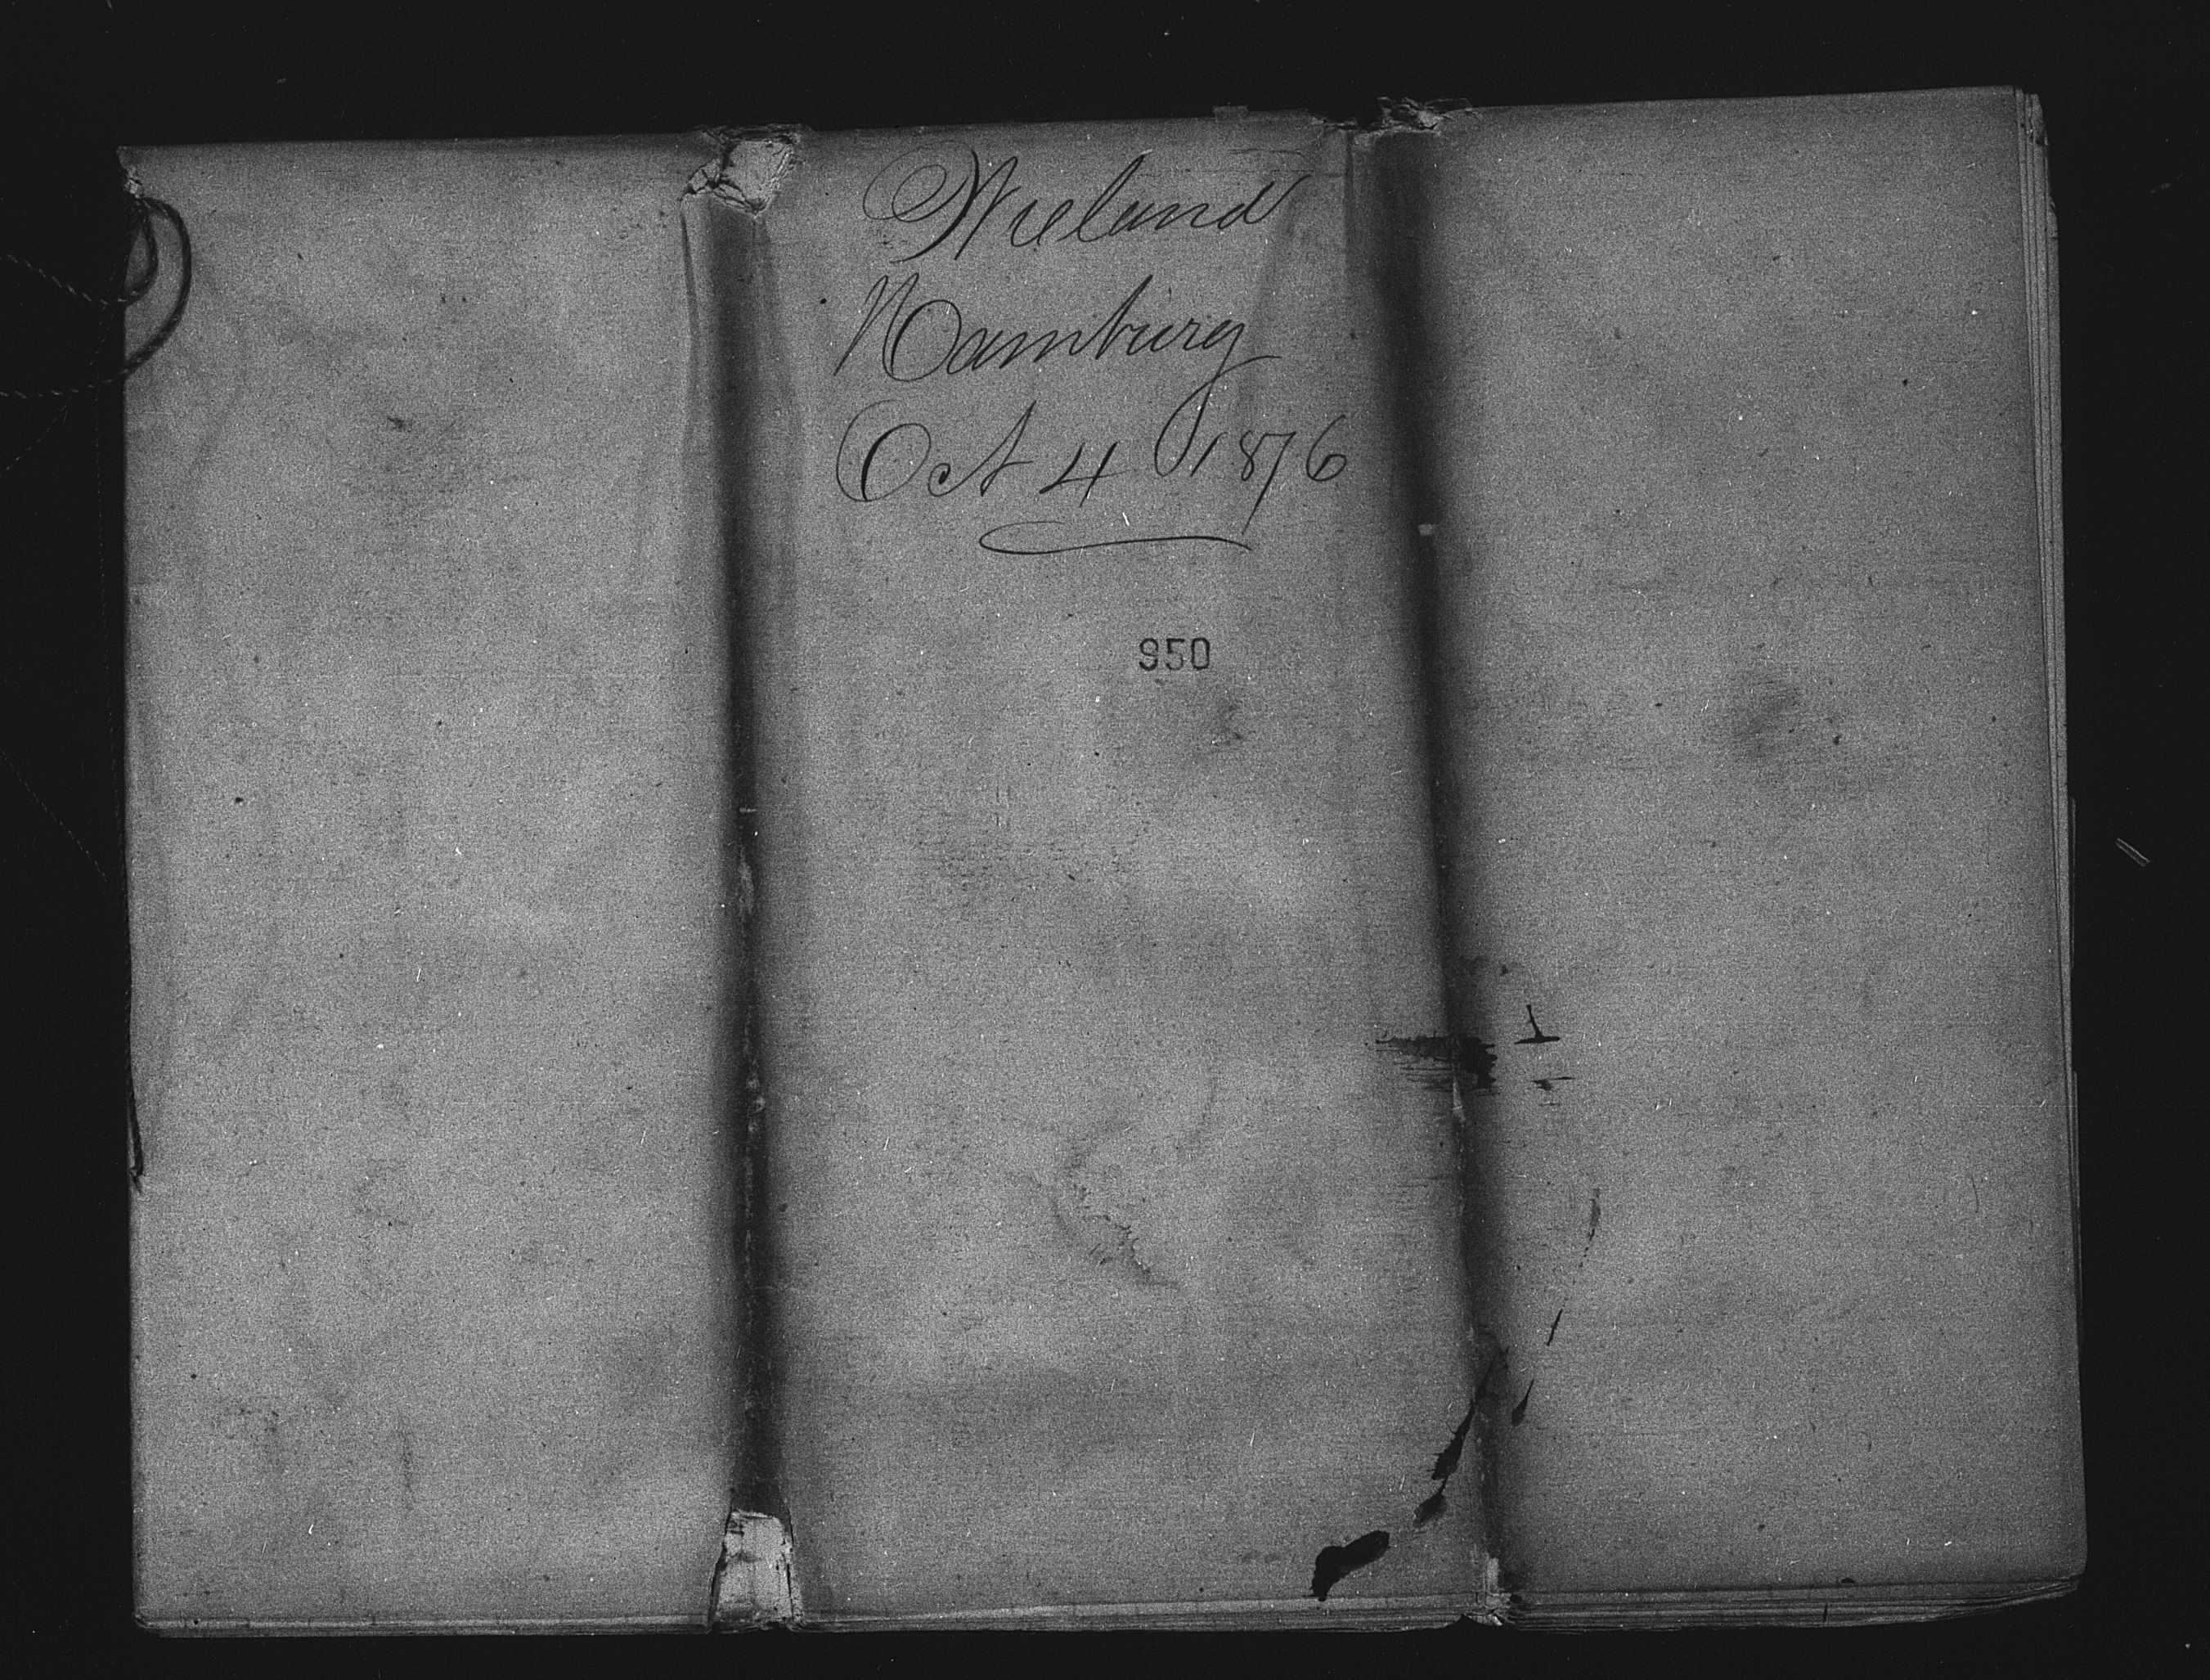 Wieland
Hamburg
Oct 4 1876
950